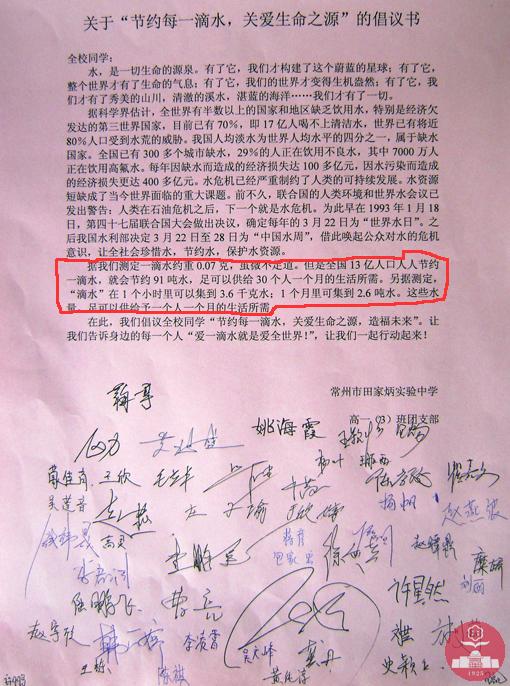 关于“节约每一滴水，关爱生命之源”的倡议书
全校同学：
水，是一切生命的源泉。有了它，我们才构建了这个蔚蓝的星球；有了它，
整个世界才有了生命的气息；有了它，我们的世界才变得生机盎然；有了它，我
们才有了秀美的山川，清澈的溪水，湛蓝的海洋……我们才有了一切。
据科学界估计，全世界有半数以上的国家和地区缺乏饮用水，特别是经济欠
发达的第三世界国家，目前已有70%，即17亿人喝不上清洁水，世界已有将近
80%人口受到水荒的威胁。我国人均淡水为世界人均水平的四分之一，属于缺水
国家。全国已有300多个城市缺水，29%的人正在饮用不良水，其中7000万人
正在饮用高氟水。每年因缺水而造成的经济损失达100多亿元，因水污染而造成
的经济损失更达400多亿元。水危机已经严重制约了人类的可持续发展。水资源
短缺成了当今世界面临的重大课题。前不久，联合国的人类环境和世界水会议已
发出警告：人类在石油危机之后，下一个就是水危机。为此早在1993年1月18
日，第四十七届联合国大会做出决议，确定每年的3月22日为“世界水日”。之
后我国水利部决定3月22日至28日为“中国水周”，借此唤起公众对水的危机
意识，让全社会珍惜水，节约水，保护水资源。
据我们测定一滴水约重0.07克，虽微不足道。但是全国13亿人口人人节约
一滴水，就会节约91吨水，足可以供给30个人一个月的生活所需。另据测定，
“滴水”在1个小时里可以集到3.6千克水；1个月里可集到2.6吨水。这些水
量，足可以供给予一个人一个月的生活所需
在此，我们倡议全校同学“节约每一滴水，关爱生命之源，造福未来”。让
我们告诉身边的每一个人“爱一滴水就是爱全世界！”，让我们一起行动起来！
常州市田家炳实验中学
高一（3）班团支部
姚海霞
王欣
杨帆
赵燕
李宸霄
陈祺
1925